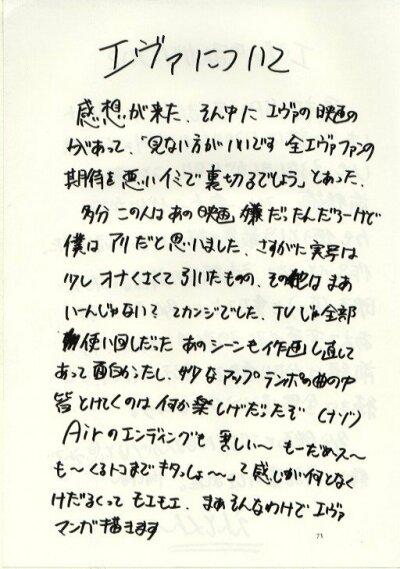 エヴァについて
感想が来た、そん中にエヴァの映画の
があって、「見ない方がいいです 全エヴァファンの
期待を悪いイミで裏切るでしょう」とあった、
多分 この人はあの映画嫌だったんだろーけど
僕はアリだと思いました、さすがに実写は
少しオナくさくて引いたものの、その他はまあ
いーんじゃない？てカンジでした、TVじゃ全部
使い回しだった あのシーンも作画し直して
あって面白かったし、妙なアップテンポの曲の中
皆とけてくのは何か楽しげだったぞ (ナゾ)
Airのエンディングも 美しい〜 もーだめス〜
も〜くるトコまでキタっしょ〜〜って感じが何となく
けだるくってモエモエ、まぁそんなわけでエヴァ
マンガ描きます